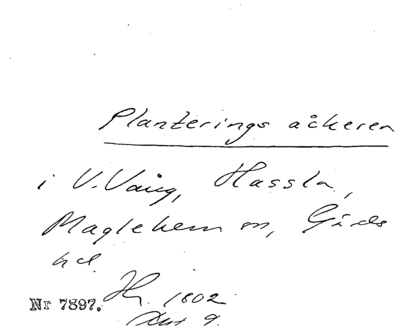 Planterings åckeren
i V. Vång, Hassla,
Maglehem sn, Gärds
hd.
Nr 7897. 1802
9.